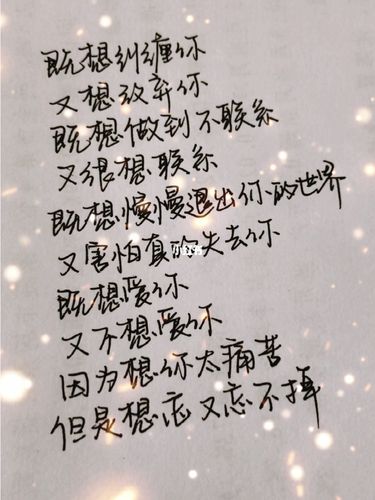 既想纠缠你
又想放弃你
既想做到不联系
又很想联系
既想慢慢退出你的世界
又害怕真的失去你
既想爱你
又不想爱你
因为想你太痛苦
但是想忘又忘不掉